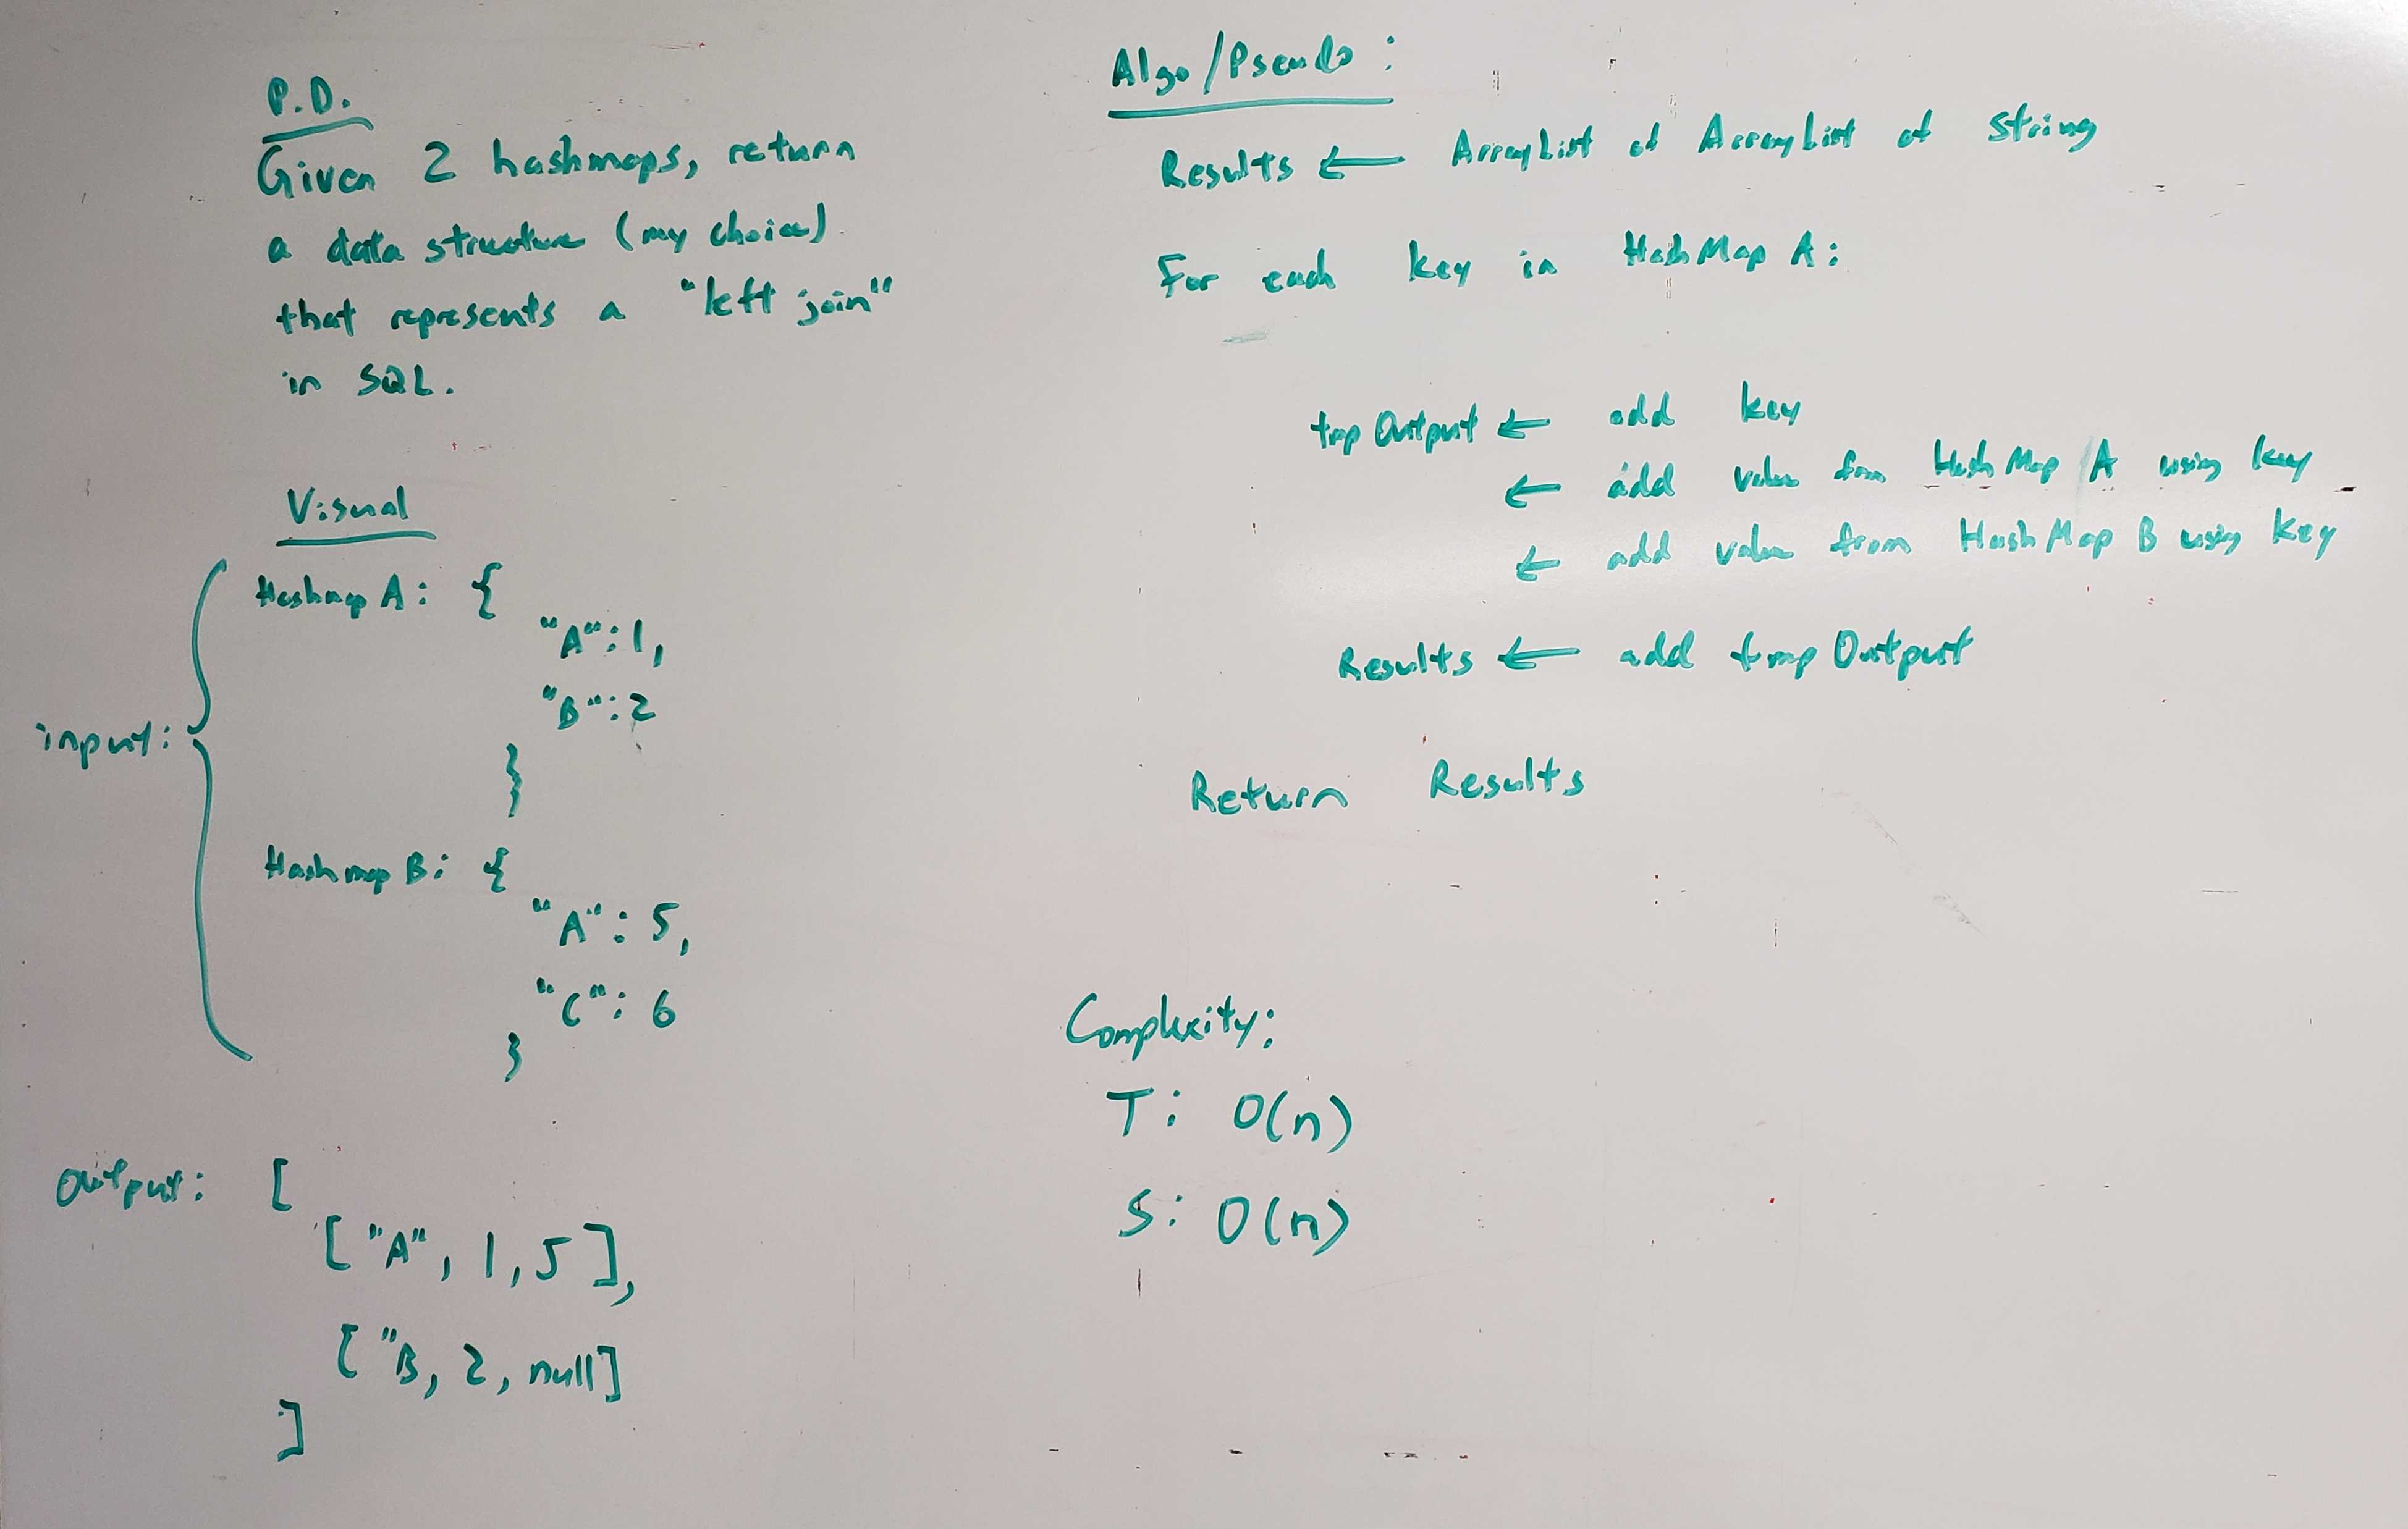 P.D.
Given 2 hashmaps, return
a data structure (my choice)
that represents a "left join"
in SQL.
Visual
input:
Hashmap A: {
"A": 1,
"B": 2
}
Hashmap B: {
"A": 5,
"C": 6
}
Output: [
["A", 1, 5],
["B, 2, null]
]
Algo/Pseudo:
Results ← ArrayList of ArrayList of String
For each key in HashMap A:
tmp Output ← add key
← add value from HashMap A using key
← add value from HashMap B using key
Results ← add tmp Output
Return Results
Complexity:
T: O(n)
S: O(n)